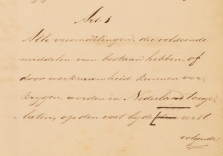 Art. 1
Alle vreemdelingen die voldoende
middelen van bestaan hebben of
door werkzaamheid kunnen ver-
krijgen, worden in Nederland toege-
laten, op den voet bij de wet
volgende